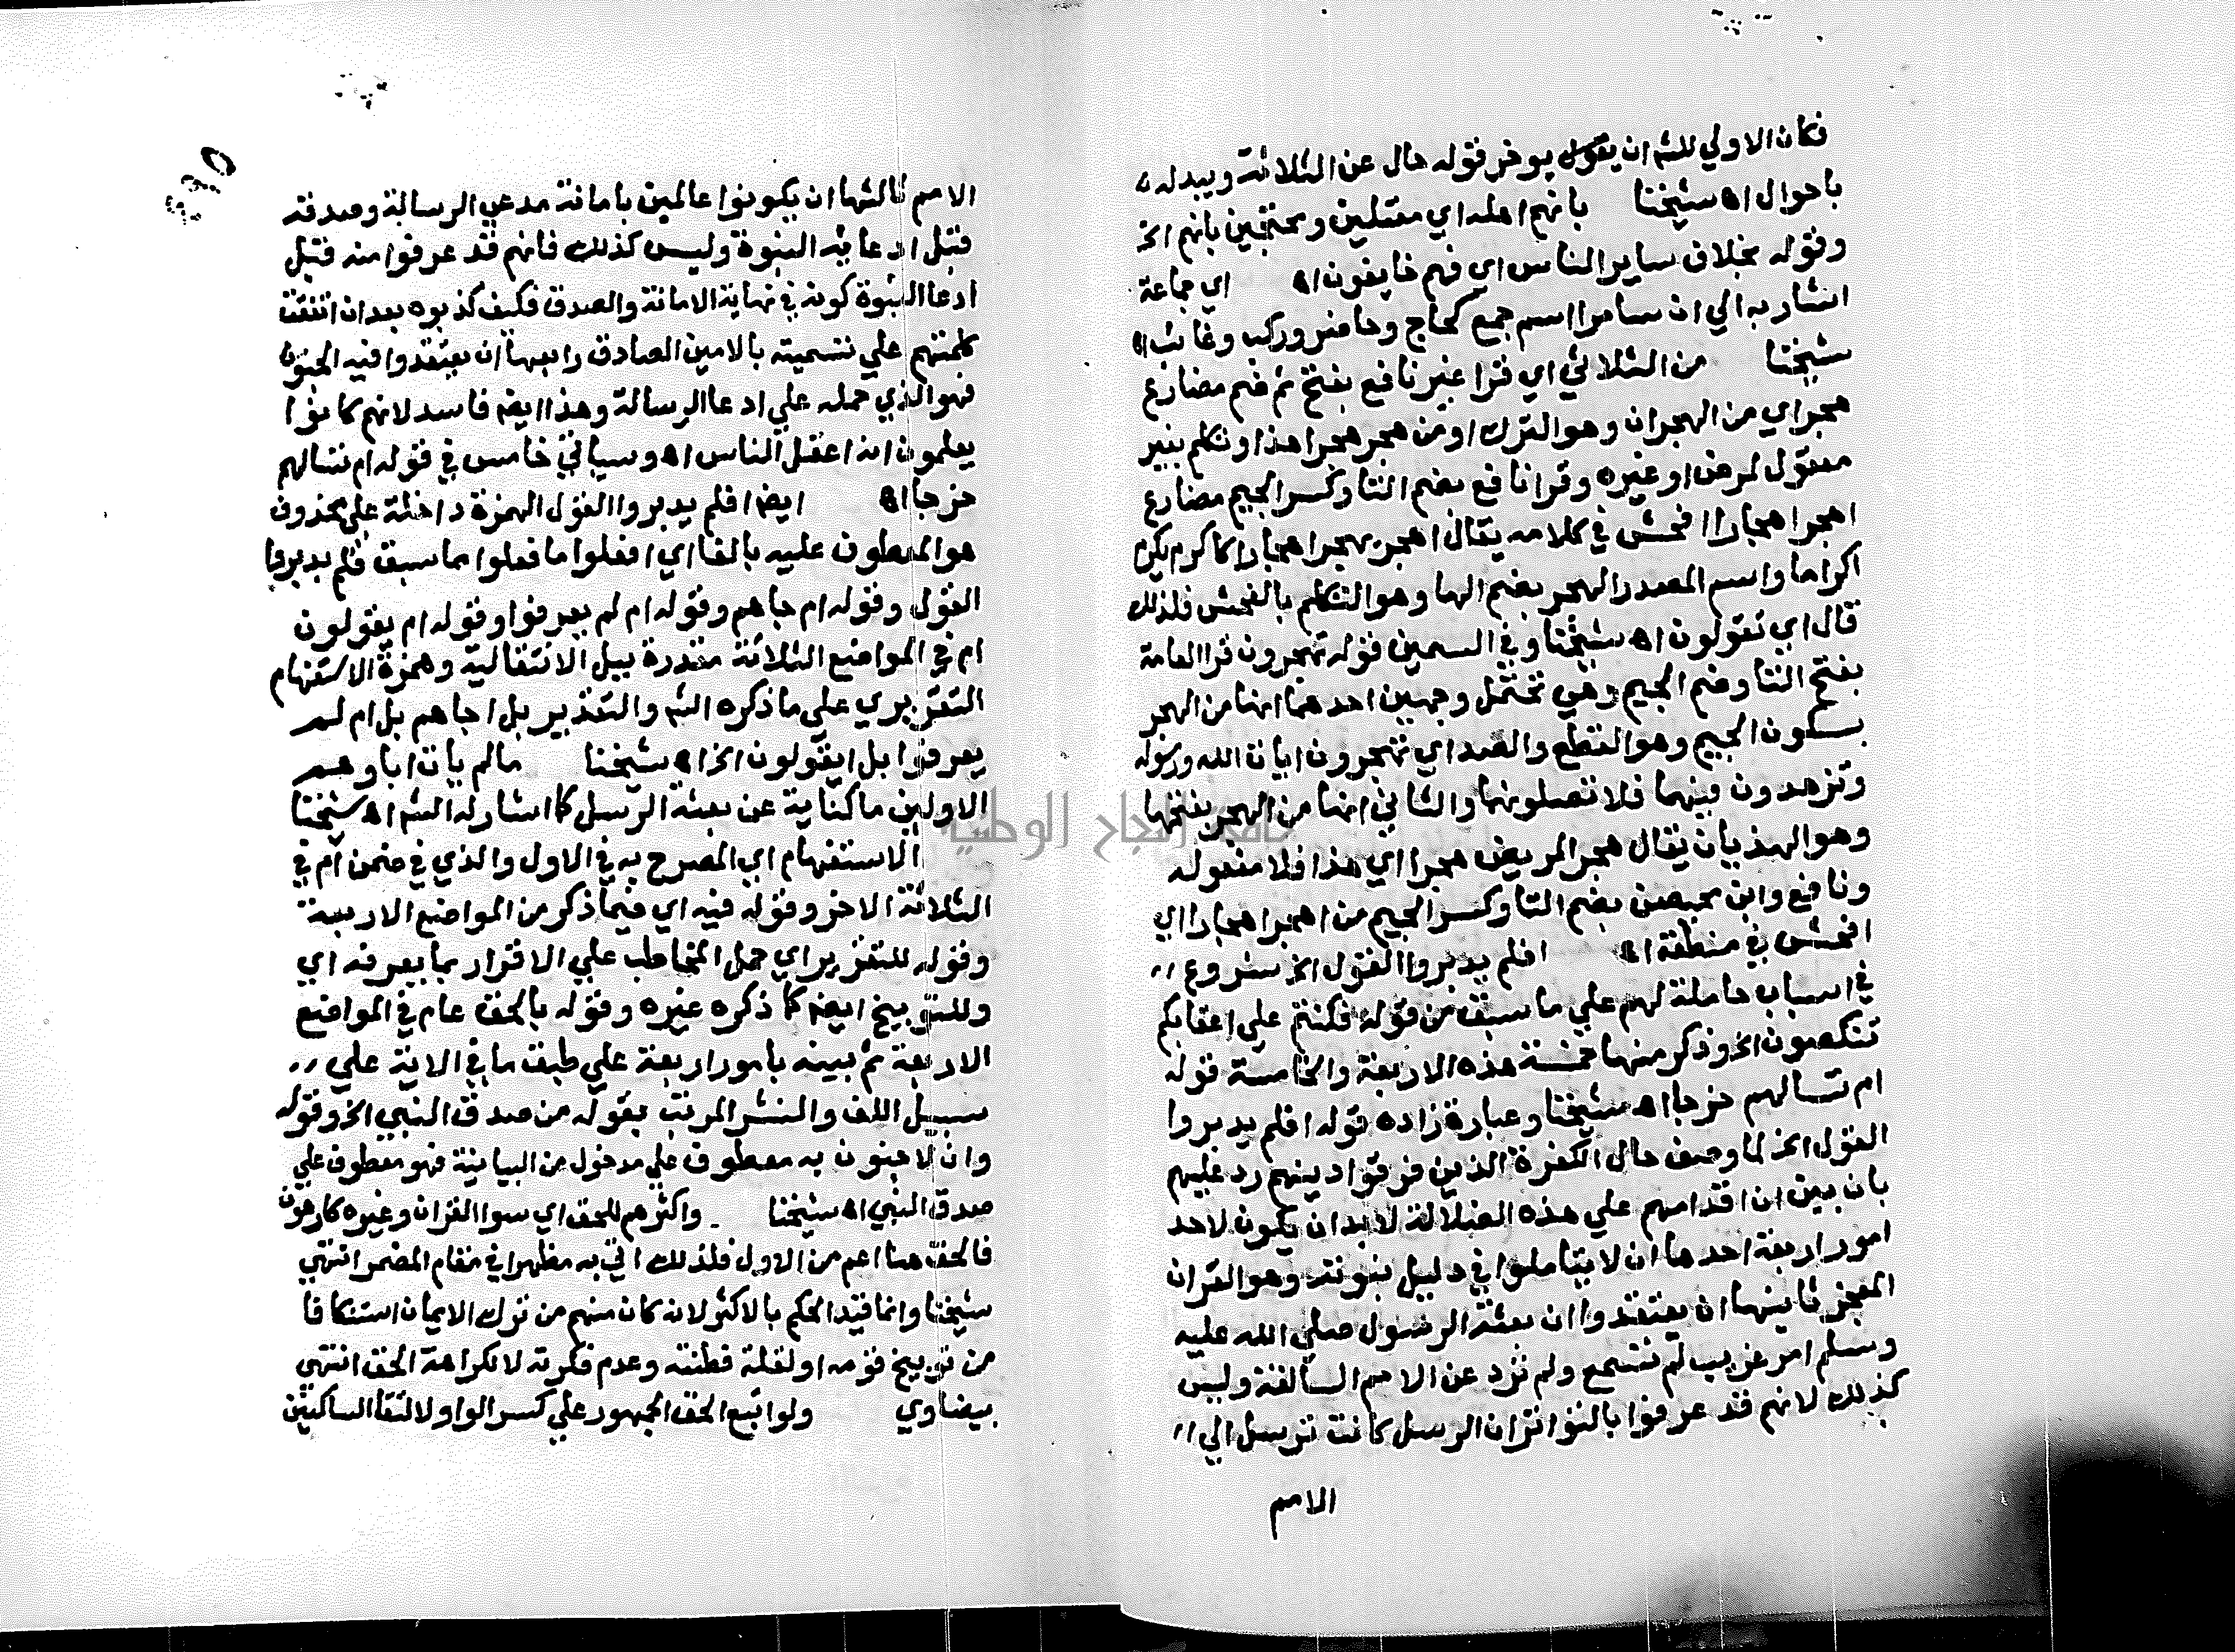 فكان الاولي للشم ان يقول يوخر قوله حال عن الثلاثة ويبدله
باحوال اه شيخنا بانهم اهله اي مقتلين ومحتجين بانهم الخ
وقوله بخلاف ساير الناس اي فهم خايفون اه اي جماعة
اشار به الي ان سامرا اسم جمع كحاج وحاضر وركب وغائب اه
شيخنا من الثلاثي اي قرا غير نافع بفتح ثم ضم مضارع
هجر اي من الهجران وهو الترك او من هجر هجرا هذا وتكلم بغير
معقول لمرض او غيره وقرا نافع بضم التا وكسر الجيم مضارع
اهجر اهجارا افحش في كلامه يقال اهجر يهجر اهجارا كاكرم يكرم
اكراما واسم المصدر الهجر بضم الها وهو التكلم بالفحش فلذلك
قال اي تقولون اه شيخنا وفي السمين قوله تهجرون قرا العامة
بفتح التا وضم الجيم وهي تحتمل وجهين احدهما انها من الهجر
بسكون الجيم وهو القطع والصد اي تهجرون ايات الله ورسوله
وتزهدون فيهما فلا تصلونها والثاني انها من الهجر بفتحها
وهو الهذيان يقال هجر المريض هجرا اي هذا فلا مفعوله
ونافع وابن محيصن بضم التا وكسر الجيم من اهجر اهجارا اي
افحش في منطقه اه افلم يدبروا القول الخ شروع
في اسباب حاملة لهم علي ما سبق من قوله فكنتم علي اعقابكم
تنكصون الخ وذكر منها خمسة هذه الاربعة والخامسة قوله
ام تسالهم خرجا اه شيخنا وعبارة زاده قوله افلم يدبروا
القول الخ لما وصف حال الكفرة الذين فرقوا دينهم رد عليهم
بان بين ان اقدامهم علي هذه الضلالة لابد ان يكون لاحد
امور اربعة احدها ان لا يتاملوا في دليل نبوته وهو القران
المعجز ثانيها ان يعتقدوا ان بعثة الرسول صلي الله عليه
وسلم امر غريب لم تسمع ولم ترد عن الامم السالفة وليس
كذلك لانهم قد عرفوا بالتواتر ان الرسل كانت ترسل الي
الامم
الامم ثالثها ان يكونوا عالمين بامانة مدعي الرسالة وصدقه
قبل ادعايه النبوة وليس كذلك فانهم قد عرفوا منه قبل
ادعا النبوة كونه في نهاية الامانة والصدق فكيف كذبوه بعد ان اتفقت
كلمتهم علي تسميته بالامين الصادق رابعها ان يعتقدوا فيه الجنون
فهو الذي حمله علي ادعا الرسالة وهذا ايضا فاسد لانهم كانوا
يعلمون انه اعقل الناس اه وسياتي خامس في قوله ام تسالهم
خرجا اه ايضا افلم يدبروا القول الهمزة داخلة علي محذوف
هو المعطوف عليه بالفا اي افعلوا ما فعلوا مما سبق فلم يدبروا
القول وقوله ام جاهم وقوله ام لم يعرفوا وقوله ام يقولون
ام في المواضع الثلاثة مقدرة ببل الانتقالية وهمزة الاستفهام
التقريري علي ما ذكره الشم والتقدير بل اجاهم بل ام لم
يعرفوا بل ايقولون الخ اه شيخنا مالم يات اباوهم
الاولين ما كناية عن بعثة الرسل كما اشار له الشم اه شيخنا
الاستفهام اي المصرح به في الاول والذي في ضمن ام في
الثلاثة الاخر وقوله فيه اي فيما ذكر من المواضع الاربعة
وقوله للتقرير اي حمل المخاطب علي الاقرار بما يعرفه اي
وللتوبيخ ايضا كما ذكره غيره وقوله بالحق عام في المواضع
الاربعة ثم بينه بامور اربعة علي طبق ما في الاية علي
سبيل اللف والنشر المرتب بقوله من صدق النبي الخ وقوله
وان لا جنون به معطوف علي مدخول من البيانية فهو معطوف علي
صدق النبي اه شيخنا واكثرهم للحق اي سوا القران وغيره كارهون
فالحق هنا اعم من الاول فلذلك اتي به مظهرا في مقام المضمر انتهي
شيخنا وانما قيد الحكم بالاكثر لانه كان منهم من ترك الايمان استنكافا
من توبيخ قومه او لقلة فطنته وعدم فكرته لا لكراهة الحق انتهي
بيضاوي ولو اتبع الحق الجمهور علي كسر الواو لالتقا الساكنين
جامعة النجاح الوطنية